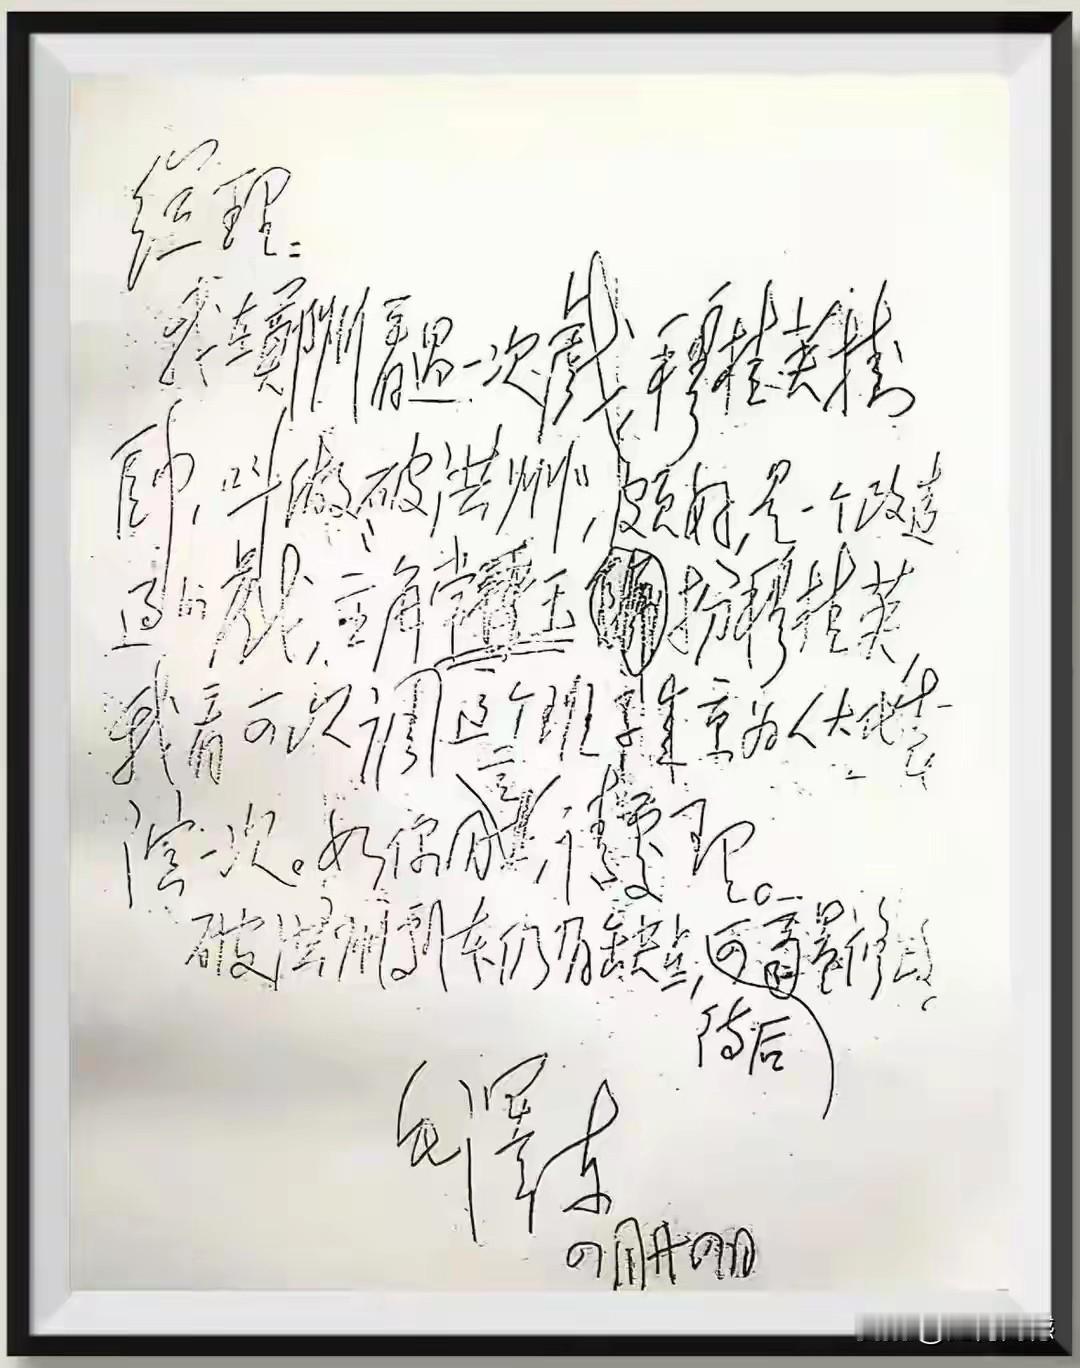 总理：
我在郑州看过一次戏，穆桂英挂
帅，叫做“破洪州”，颇好，是一个改造
过的戏，主角常香玉扮穆桂英
我看可以调这个班子来京为人大代表
演一次。如你同意，请处理。
破洪州剧本仍有缺点，可商量修改
待后
毛泽东
四月廿四日